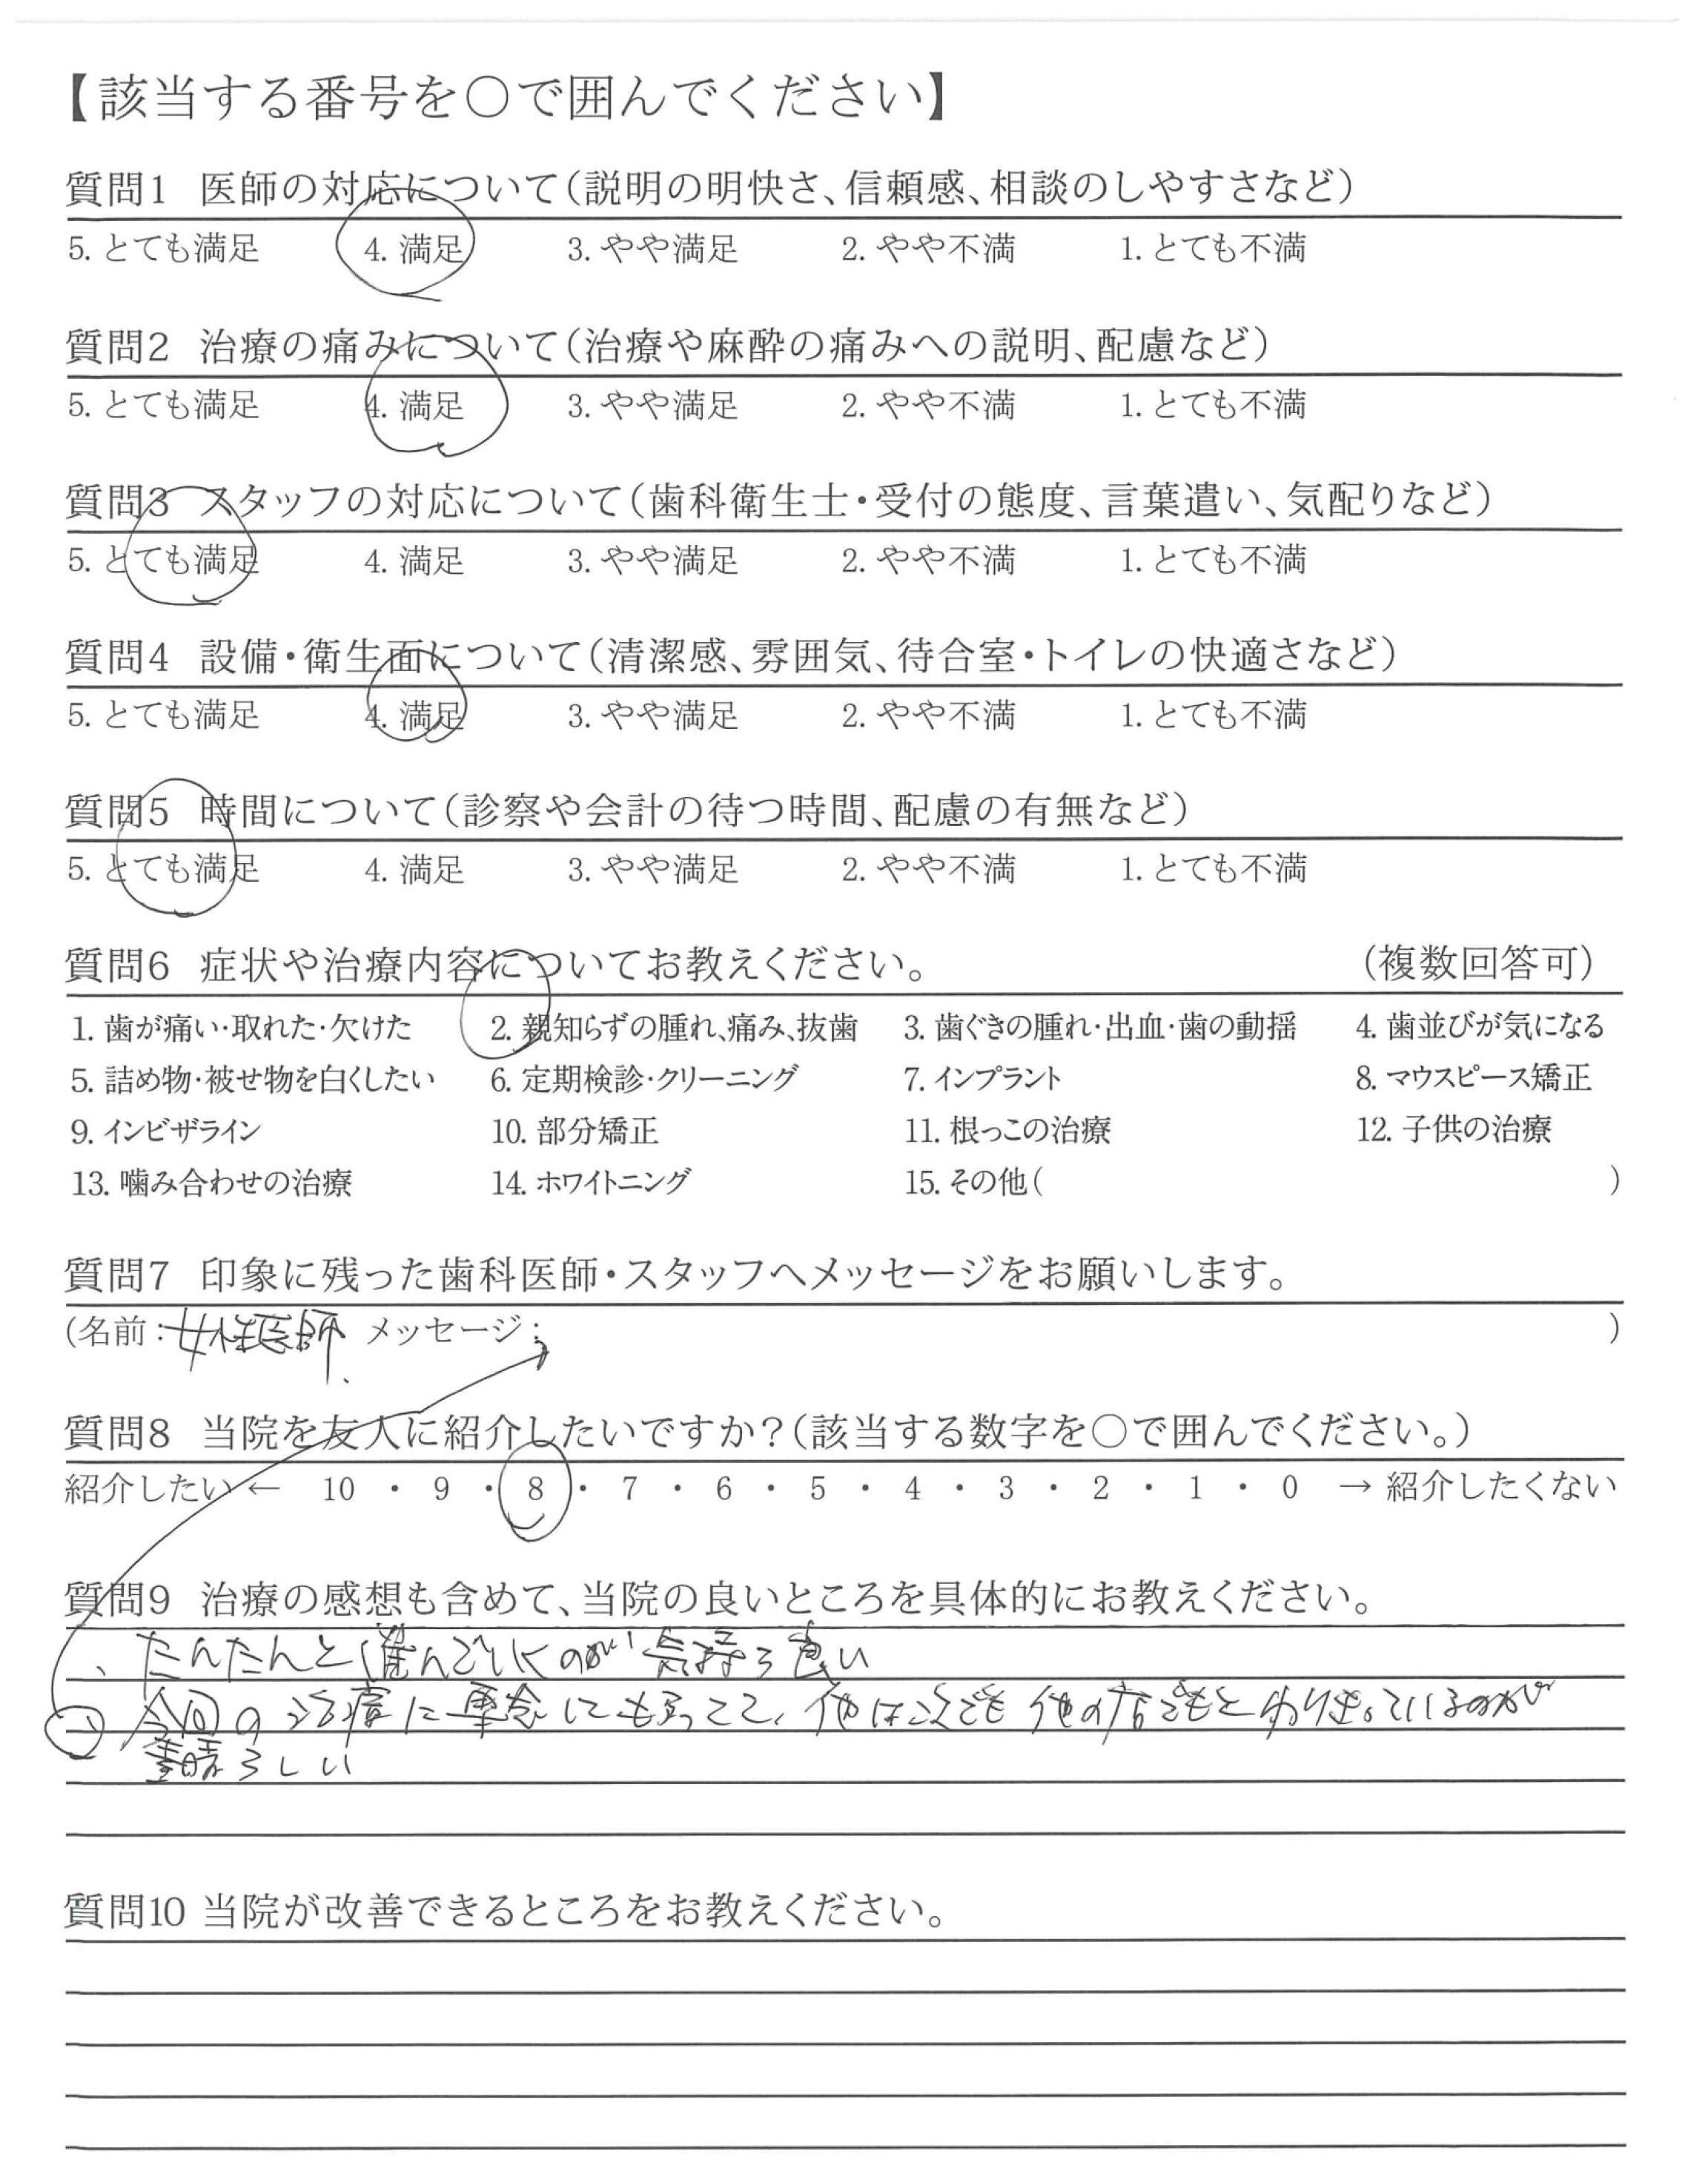 【該当する番号を○で囲んでください】
質問1 医師の対応について（説明の明快さ、信頼感、相談のしやすさなど）
5. とても満足 4. 満足 3. やや満足 2. やや不満 1. とても不満
質問2 治療の痛みについて（治療や麻酔の痛みへの説明、配慮など）
5. とても満足 4. 満足 3. やや満足 2. やや不満 1. とても不満
質問3 スタッフの対応について（歯科衛生士・受付の態度、言葉遣い、気配りなど）
5. とても満足 4. 満足 3. やや満足 2. やや不満 1. とても不満
質問4 設備・衛生面について（清潔感、雰囲気、待合室・トイレの快適さなど）
5. とても満足 4. 満足 3. やや満足 2. やや不満 1. とても不満
質問5 時間について（診察や会計の待つ時間、配慮の有無など）
5. とても満足 4. 満足 3. やや満足 2. やや不満 1. とても不満
質問6 症状や治療内容についてお教えください。 （複数回答可）
1. 歯が痛い・取れた・欠けた 2. 親知らずの腫れ、痛み、抜歯 3. 歯ぐきの腫れ・出血・歯の動揺 4. 歯並びが気になる
5. 詰め物・被せ物を白くしたい 6. 定期検診・クリーニング 7. インプラント 8. マウスピース矯正
9. インビザライン 10. 部分矯正 11. 根っこの治療 12. 子供の治療
13. 噛み合わせの治療 14. ホワイトニング 15. その他（ ）
質問7 印象に残った歯科医師・スタッフへメッセージをお願いします。
（名前：女性医師. メッセージ： ）
質問8 当院を友人に紹介したいですか？（該当する数字を○で囲んでください。）
紹介したい ← 10 ・ 9 ・ 8 ・ 7 ・ 6 ・ 5 ・ 4 ・ 3 ・ 2 ・ 1 ・ 0 → 紹介したくない
質問9 治療の感想も含めて、当院の良いところを具体的にお教えください。
、たんたんと進んでいくのが気持ち良い
今回の治療に専念してもらってて、他は次でも他の店でもとわりきっているのが
素晴らしい
質問10 当院が改善できるところをお教えください。